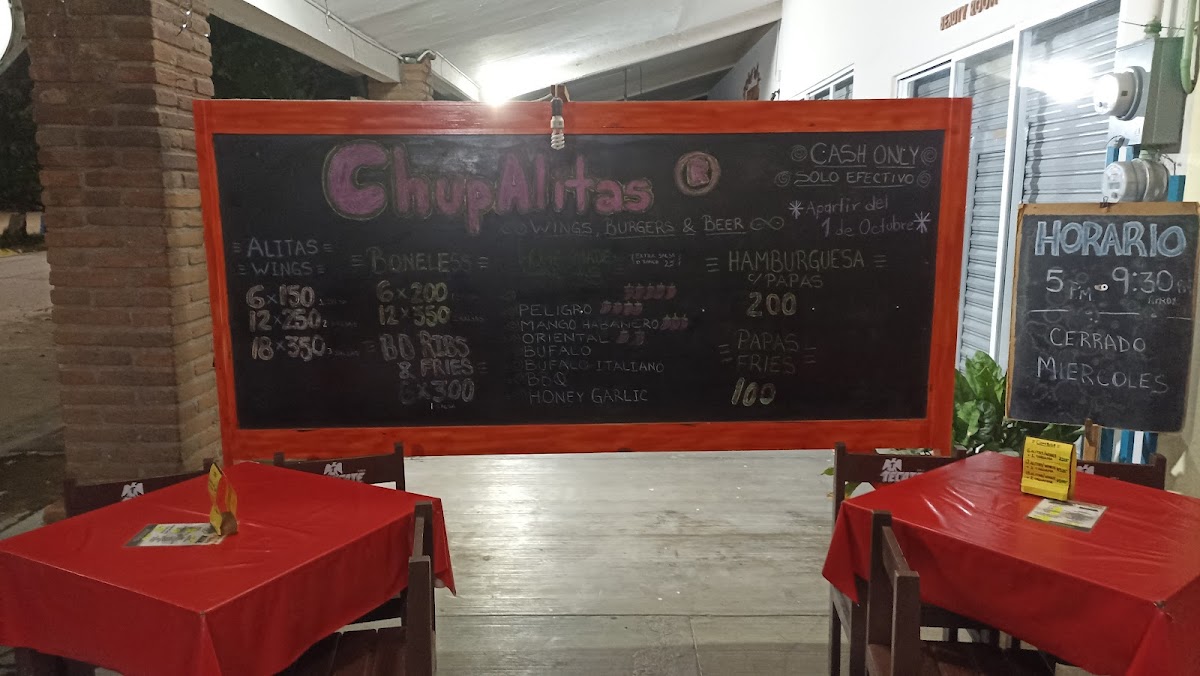 BEAUTY ROOM
ChupAlitas
WINGS, BURGERS & BEER
CASH ONLY
SOLO EFECTIVO
*Apartir del
1 de Octubre*
ALITAS
WINGS
6x150
12x250
18x350
BONELESS
6x200
12x350
BBQ RIBS
& FRIES
300
PELIGRO
MANGO HABANERO
ORIENTAL
BUFALO
BUFALO ITALIANO
BBQ
HONEY GARLIC
HAMBURGUESA
C/PAPAS
200
PAPAS
FRIES
100
HORARIO
5PM - 9:30
CERRADO
MIERCOLES
TECATE
TECATE